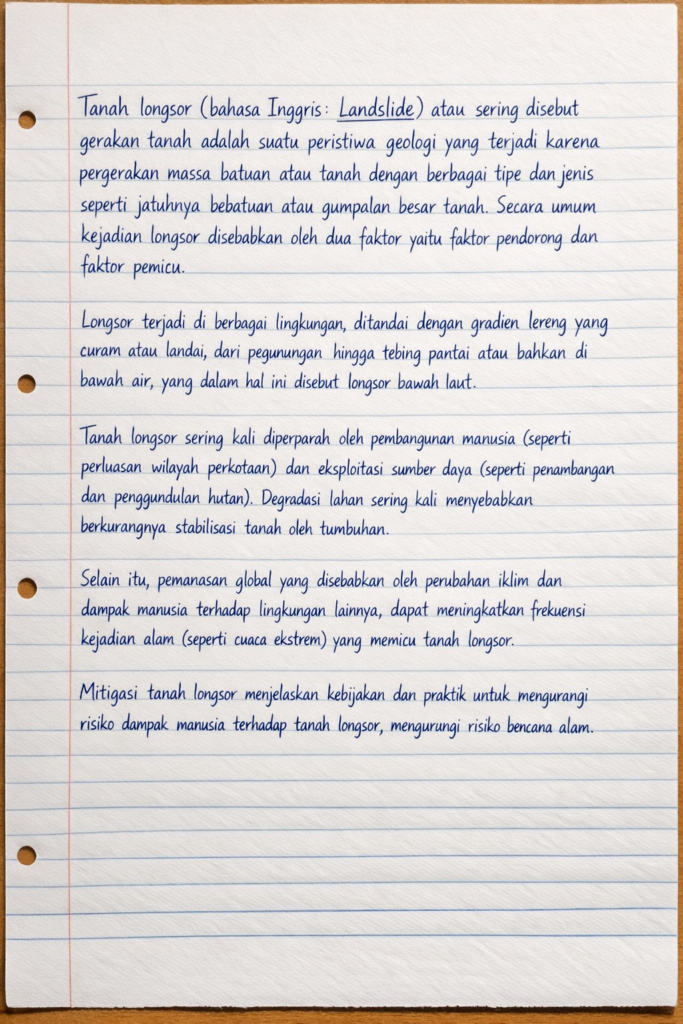 Tanah longsor (bahasa Inggris: Landslide) atau sering disebut
gerakan tanah adalah suatu peristiwa geologi yang terjadi karena
pergerakan massa batuan atau tanah dengan berbagai tipe dan jenis
seperti jatuhnya bebatuan atau gumpalan besar tanah. Secara umum
kejadian longsor disebabkan oleh dua faktor yaitu faktor pendorong dan
faktor pemicu.
Longsor terjadi di berbagai lingkungan, ditandai dengan gradien lereng yang
curam atau landai, dari pegunungan hingga tebing pantai atau bahkan di
bawah air, yang dalam hal ini disebut longsor bawah laut.
Tanah longsor sering kali diperparah oleh pembangunan manusia (seperti
perluasan wilayah perkotaan) dan eksploitasi sumber daya (seperti penambangan
dan penggundulan hutan). Degradasi lahan sering kali menyebabkan
berkurangnya stabilisasi tanah oleh tumbuhan.
Selain itu, pemanasan global yang disebabkan oleh perubahan iklim dan
dampak manusia terhadap lingkungan lainnya, dapat meningkatkan frekuensi
kejadian alam (seperti cuaca ekstrem) yang memicu tanah longsor.
Mitigasi tanah longsor menjelaskan kebijakan dan praktik untuk mengurangi
risiko dampak manusia terhadap tanah longsor, mengurungi risiko bencana alam.